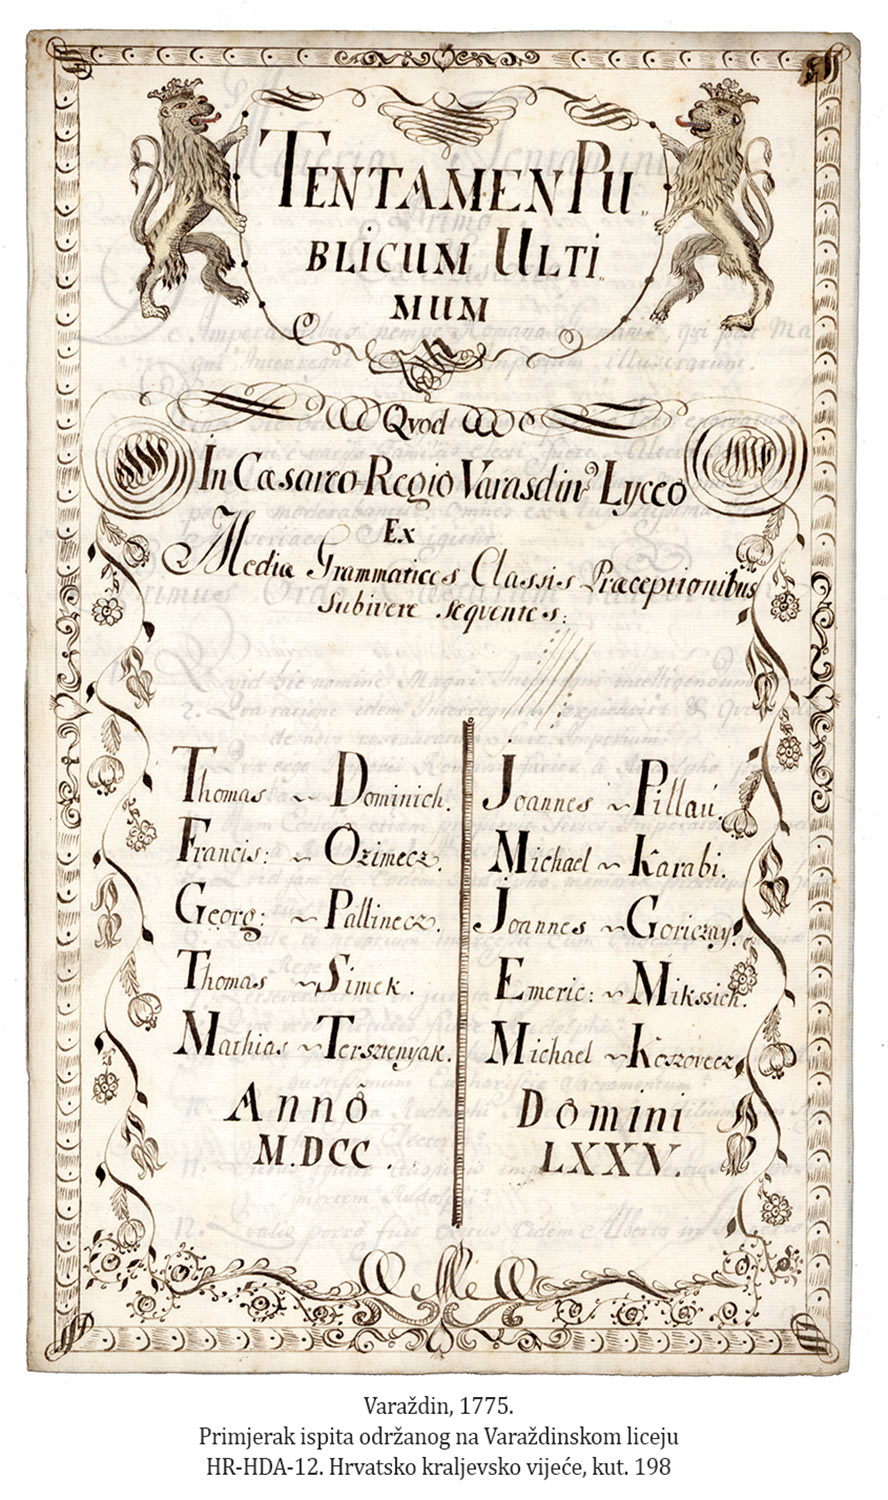 TENTAMEN PU„
BLICUM ULTI„
MUM
Qvod
In Cæsareo-Regio Varasdin Lyceo
Ex
Mediæ Grammatices Classis Præceptionibus
Subivere sequentes:
Thomas ~ Dominich.
Francis: ~ Ozimecz.
Georg: ~ Pallinecz.
Thomas ~ Simek.
Mathias ~ Terszenyak.
Joannes ~ Pillaú.
Michael ~ Karabi.
Joannes ~ Goriczay.
Emeric: ~ Mikssich.
Michael ~ Koszovecz
Annô Domini
M.DCC. LXXV.
Varaždin, 1775.
Primjerak ispita održanog na Varaždinskom liceju
HR-HDA-12. Hrvatsko kraljevsko vijeće, kut. 198